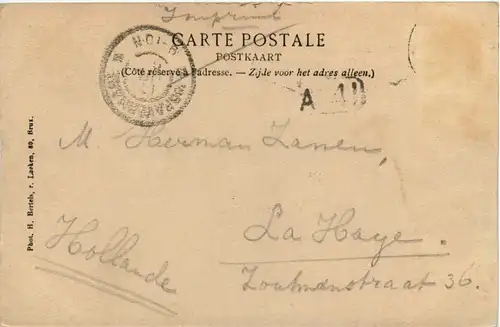 Imprimé
CARTE POSTALE
POSTKAART
(Côté réservé à l'adresse. — Zijde voor het adres alleen.)
A 41
M. Herman Zanen,
La Haye.
Zoutmanstraat 36.
Hollande
Phot. H. Bertels, r. Laeken, 89, Brux.